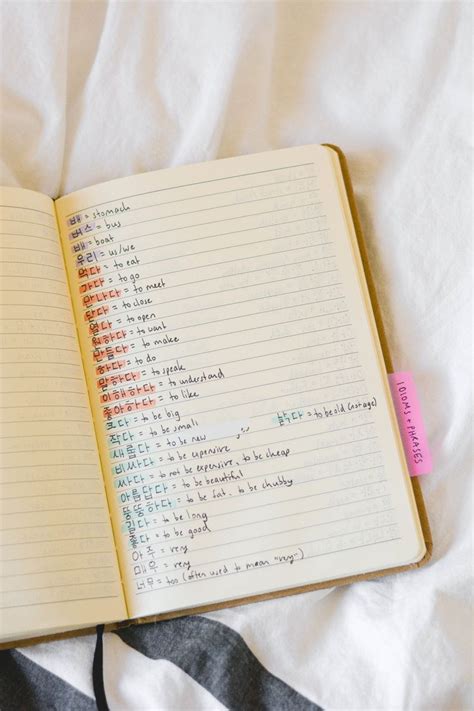 배 = stomach
버스 = bus
배 = boat
우리 = us/we
먹다 = to eat
가다 = to go
만나다 = to meet
닫다 = to close
열다 = to open
원하다 = to want
만들다 = to make
하다 = to do
말하다 = to speak
이해하다 = to understand
좋아하다 = to like
크다 = to be big
작다 = to be small
새롭다 = to be new 낡다 = to be old (not age)
비싸다 = to be expensive
싸다 = to not be expensive, to be cheap
아름답다 = to be beautiful
뚱뚱하다 = to be fat, to be chubby
길다 = to be long
좋다 = to be good
아주 = very
매우 = very
너무 = too (often used to mean "very")
IDIOMS + PHRASES